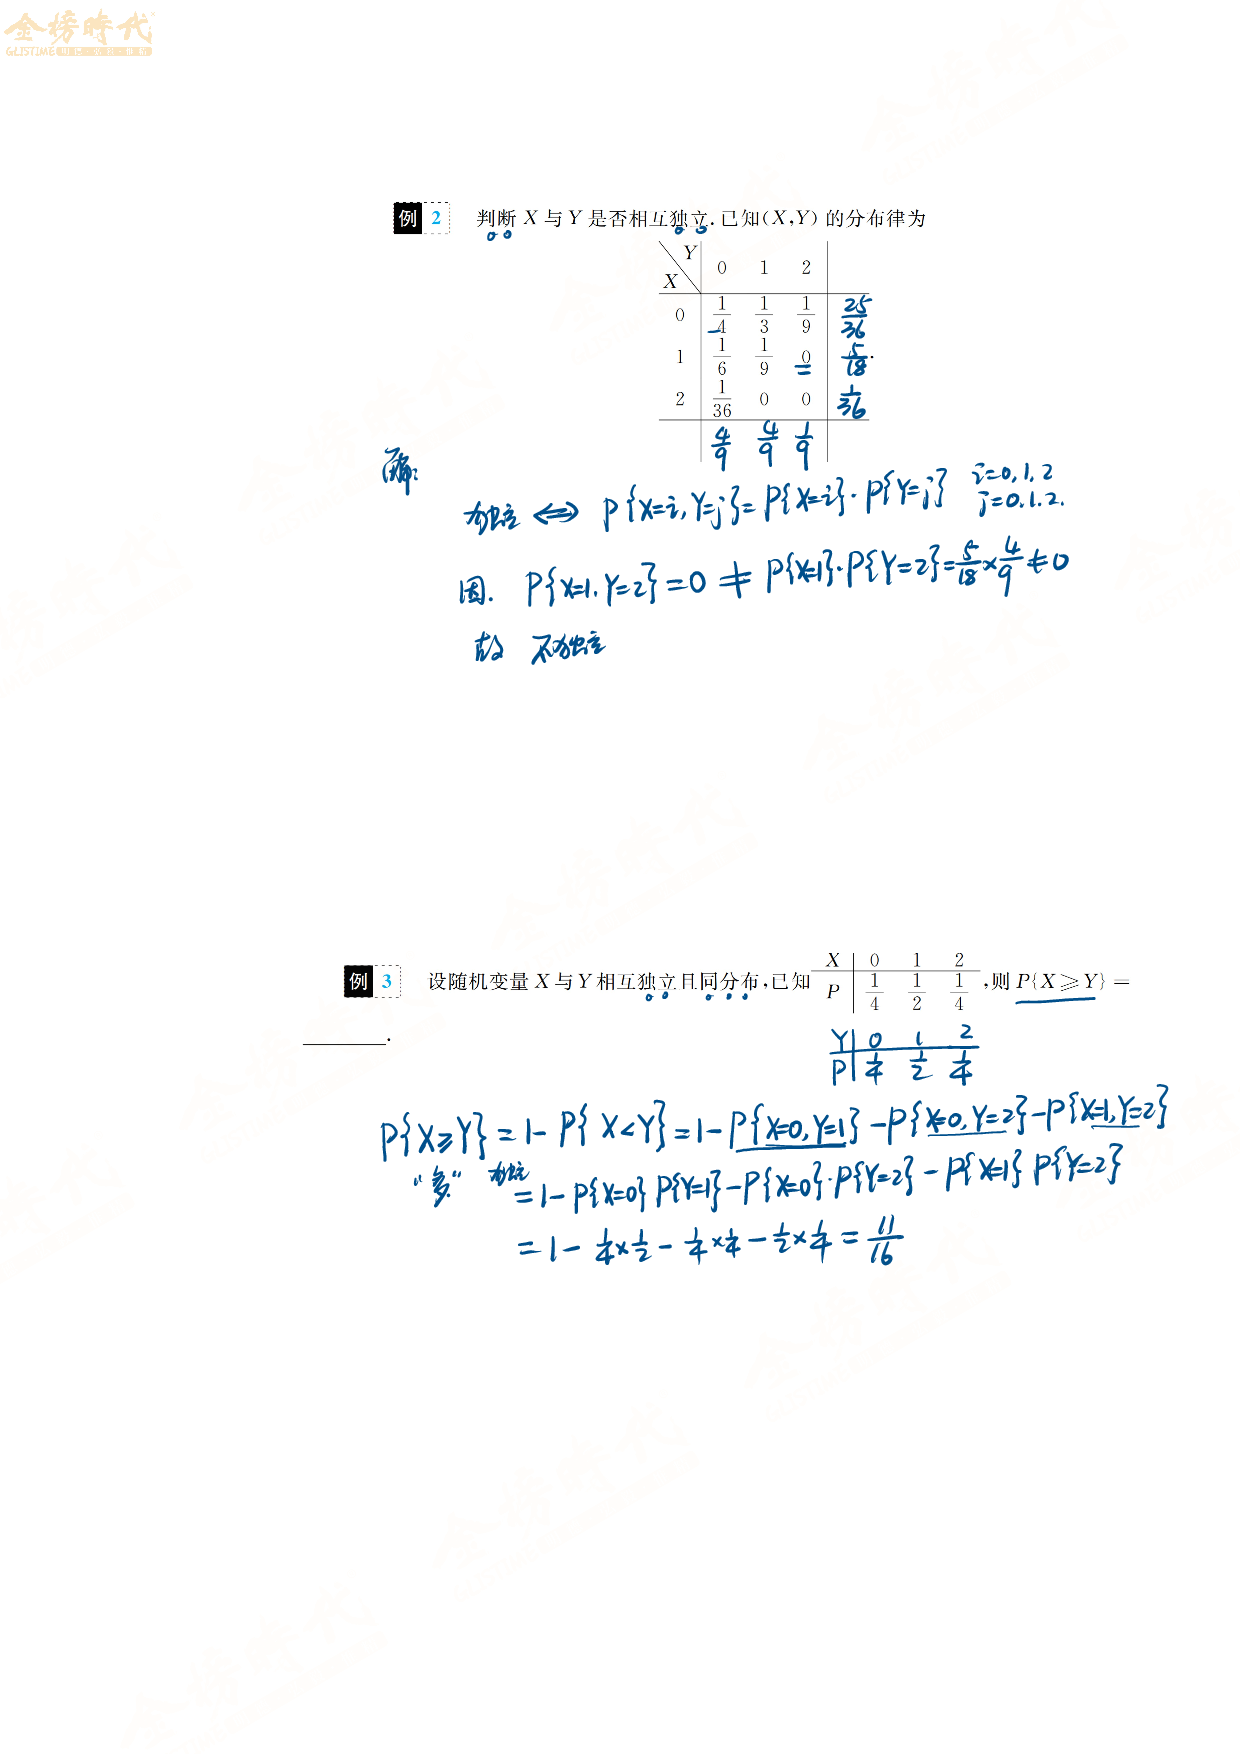 金榜時代
GLISTIME
例 2 判断 X 与 Y 是否相互独立. 已知(X,Y) 的分布律为
Y 0 1 2
X
0 1/4 1/3 1/9 25/36
1 1/6 1/9 0 5/18 .
2 1/36 0 0 1/36
4/9 4/9 1/9
解:
独立 ⟺ P{X=i, Y=j}=P{X=i}·P{Y=j} i=0,1,2
j=0.1.2.
因. P{X=1.Y=2}=0 ≠ P{X=1}·P{Y=2}=5/18×4/9≠0
故 不独立
例 3 设随机变量 X 与 Y 相互独立且同分布, 已知 X 0 1 2 P 1/4 1/2 1/4 ,则 P{X⩾Y} =
________.
Y 0 1 2
P 1/4 1/2 1/4
P{X≥Y} = 1- P{X<Y} = 1- P{X=0, Y=1} - P{X=0, Y=2} - P{X=1, Y=2}
“多” 独立 = 1- P{X=0} P{Y=1} - P{X=0}·P{Y=2} - P{X=1} P{Y=2}
= 1 - 1/4×1/2 - 1/4×1/4 - 1/2×1/4 = 11/16